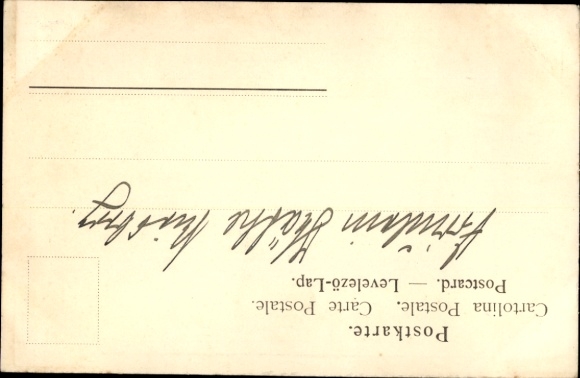 Postkarte.
Cartolina Postale. Carte Postale.
Postcard. — Levelező-Lap.
Fräulein Käthe